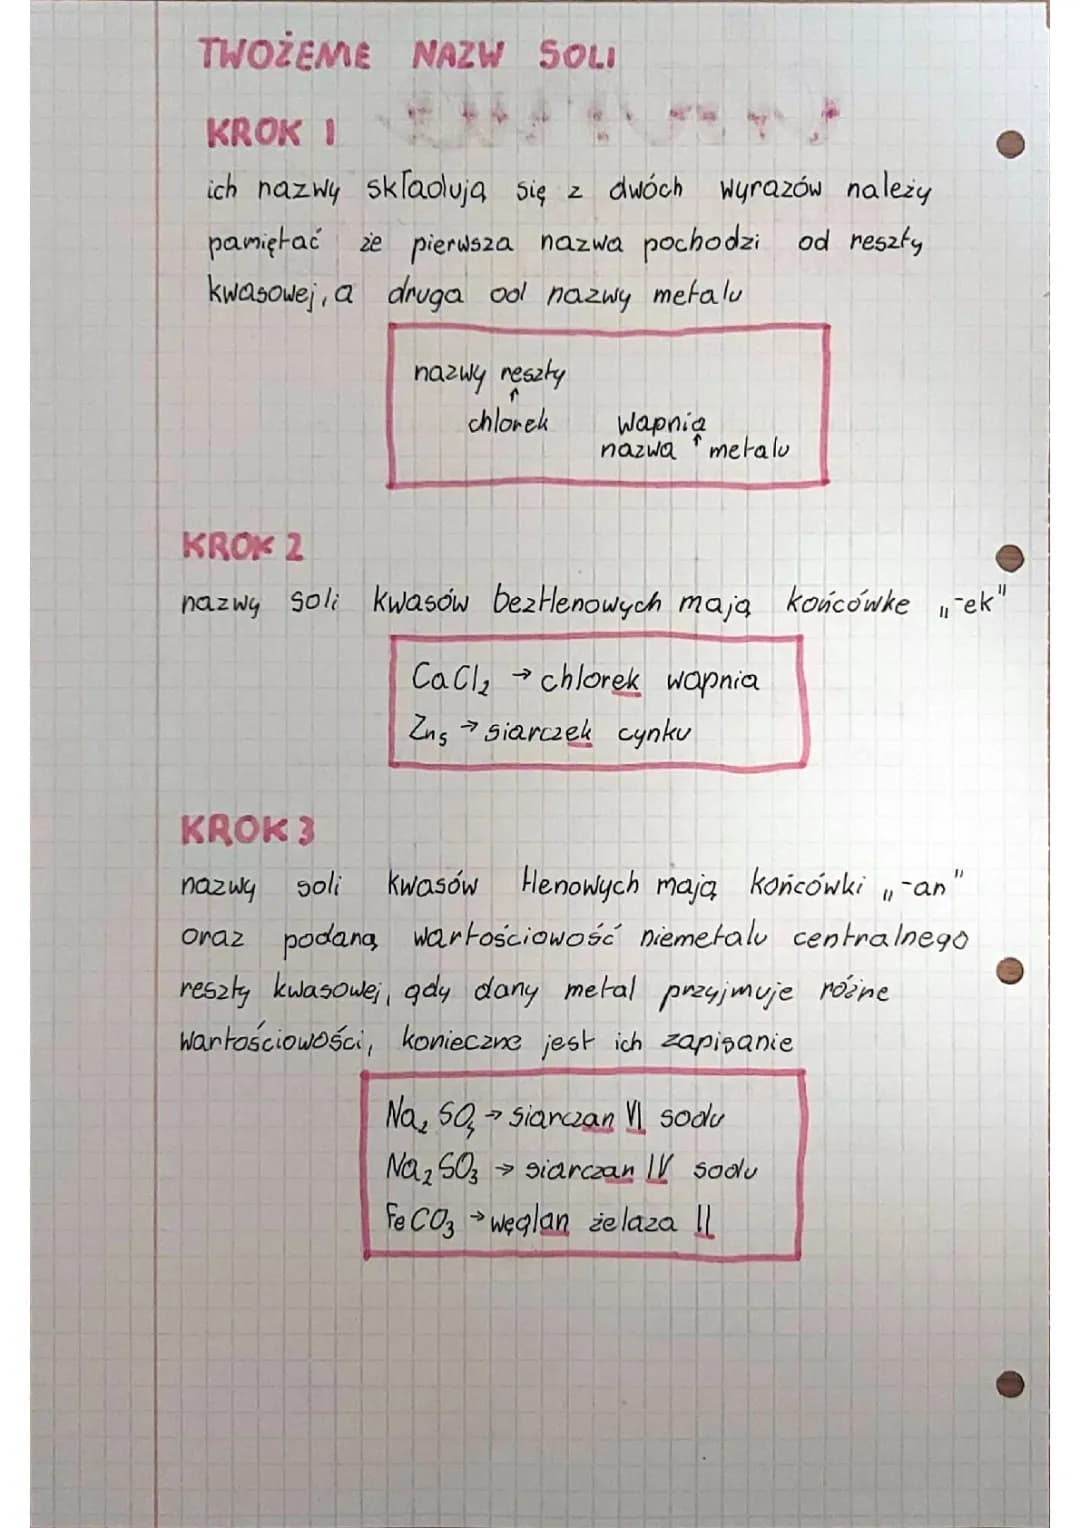 TWOŻEME NAZW SOLI
KROK 1
ich nazwy składują się z dwóch wyrazów należy
pamiętać że pierwsza nazwa pochodzi od reszty
kwasowej, a druga od nazwy metalu
nazwy reszty
↑
chlorek wapnia
nazwa ↑ metalu
KROK 2
nazwy soli kwasów beztlenowych mają końcówke „-ek"
CaCl₂ → chlorek wapnia
Znₛ → siarczek cynku
KROK 3
nazwy soli kwasów tlenowych mają końcówki „-an"
oraz podaną wartościowość niemetalu centralnego
reszty kwasowej, gdy dany metal przyjmuje różne
wartościowości, konieczne jest ich zapisanie
Na₂ SO₄ → siarczan VI sodu
Na₂ SO₃ → siarczan IV sodu
FeCO₃ → węglan żelaza II